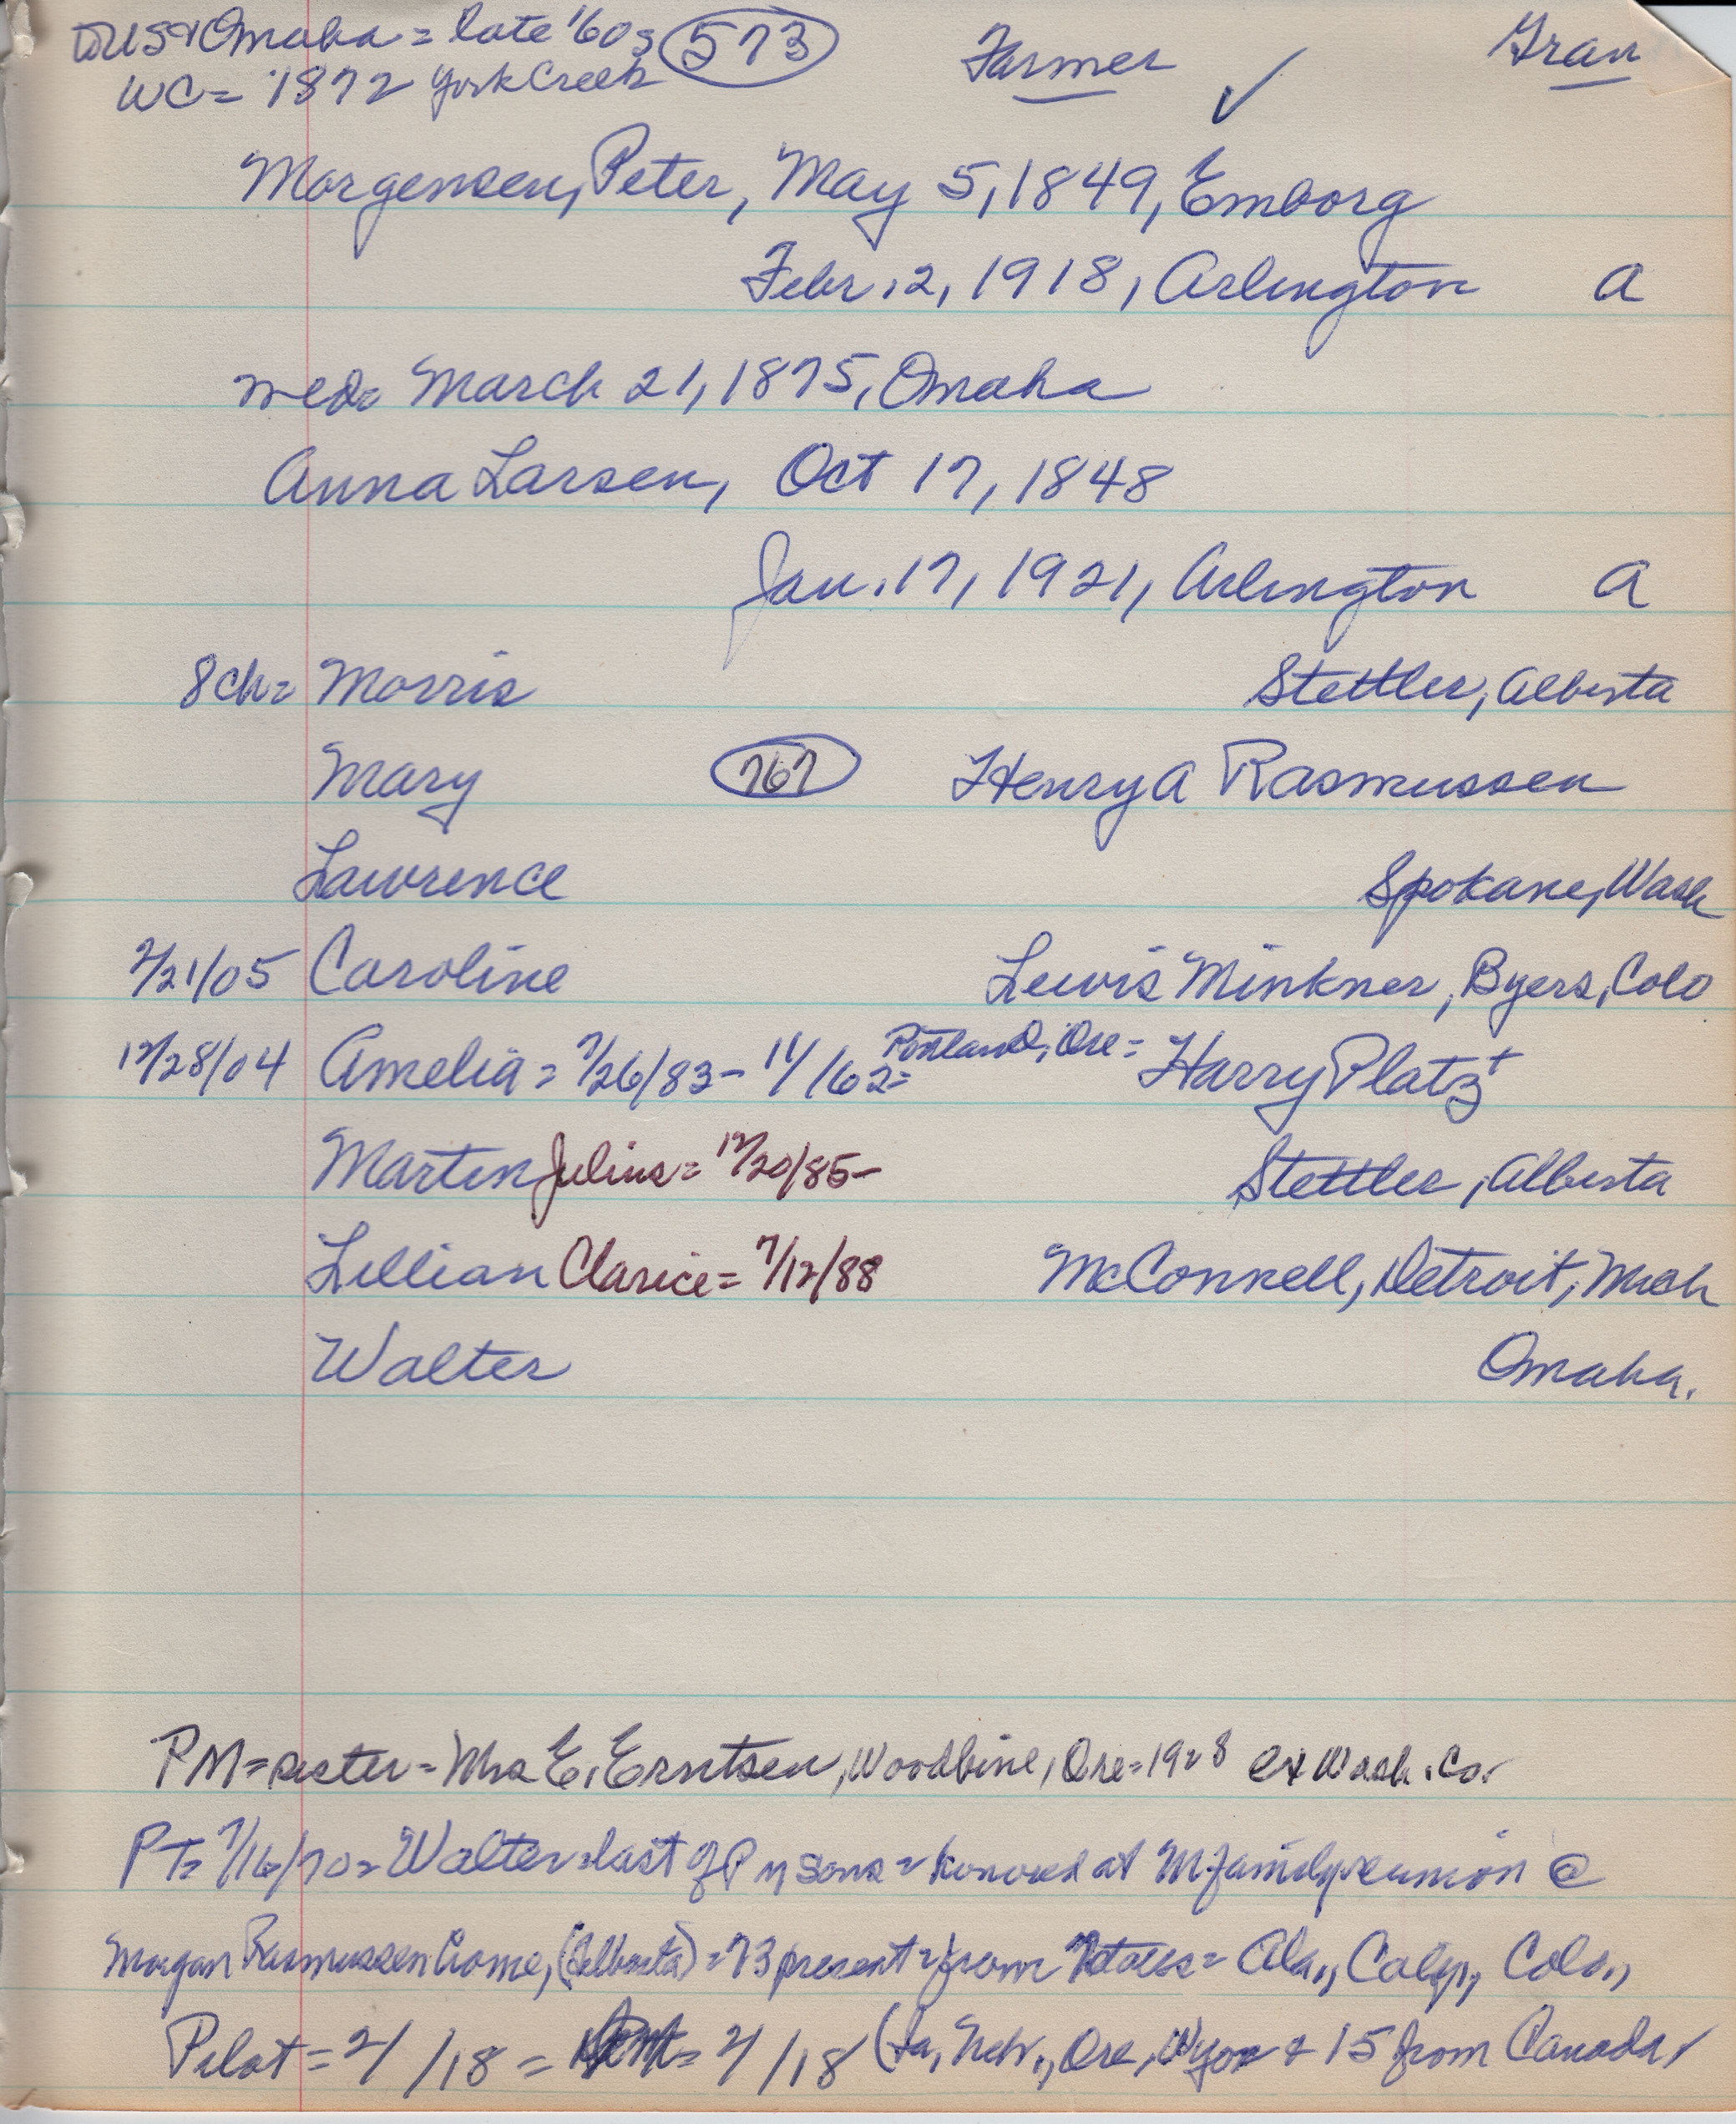 to US & Omaha = late '60s (573) Farmer ✓ Gran
WC = 1872 York Creek
Morgensen, Peter, May 5, 1849, Emborg
Febr. 2, 1918, Arlington A
wed = March 21, 1875, Omaha
Anna Larsen, Oct 17, 1848
Jan. 17, 1921, Arlington A
8 ch = Morris Stettler, Alberta
Mary (767) Henry A Rasmussen
Lawrence Spokane, Wash
2/21/05 Caroline Lewis Minkner, Byers, Colo
12/28/04 Amelia = 7/26/83 - 11/ /62 = Portland, Ore = Harry Platz +
Martin Julius = 12/20/85 - Stettler, Alberta
Lillian Clarice = 7/12/88 McConnell, Detroit, Mich
Walter Omaha.
PM = sister = Mrs E. Erntsen, Woodbine, Ore = 1928 ex Wash. Co.
PT = 7/16/70 = Walter = last of P M sons = honored at M family reunion @
Morgan Rasmussen home, (Alberta) = 73 present = from 7 states = Ala., Calif., Colo.,
Pilot = 2/ /18 = = 2/ /18 (Ia, Nebr., Ore, Wyo + 15 from Canada)